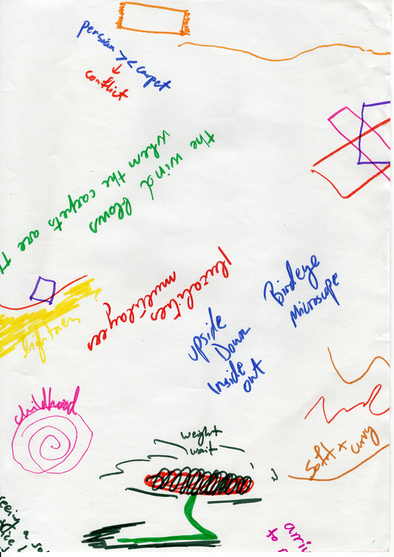 persian >< carpet
↓
conflict
the wind blows
when the carpets are
pluralities
multilayer
Birdeye
Microscope
upside
Down
Inside
out
lightness
childhood
weight
wait
soft x curvy
seeing a
to